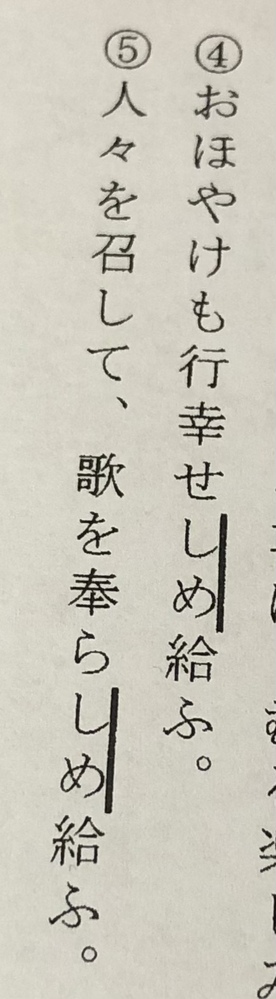 ④おほやけも行幸せしめ給ふ。
⑤人々を召して、歌を奉らしめ給ふ。